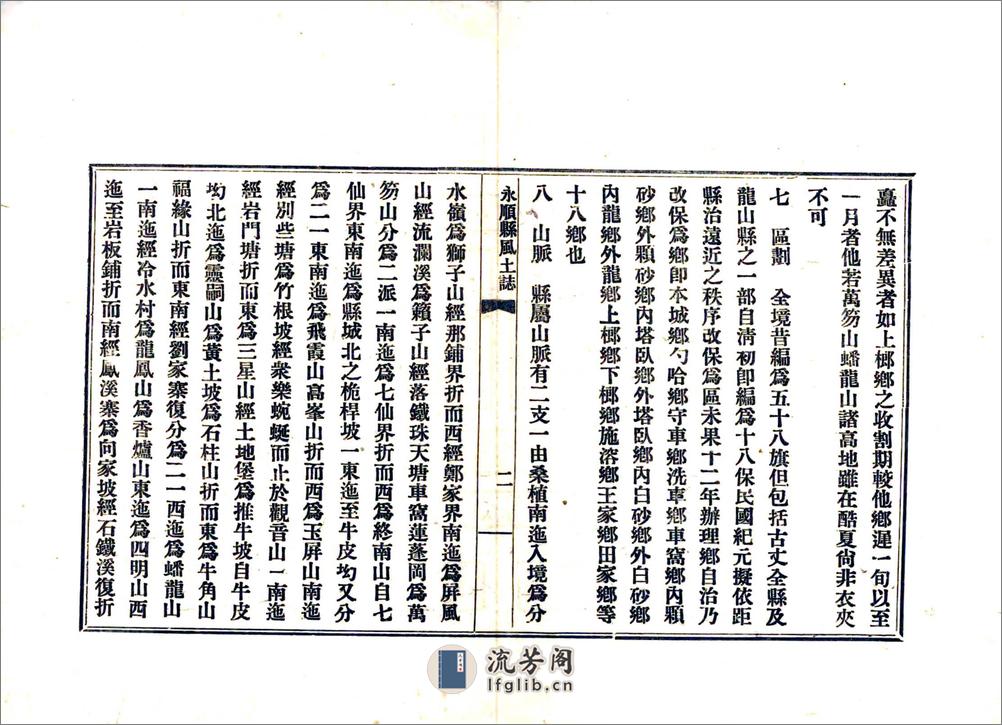 矗不無差異者如上榔鄉之收割期較他鄉遲一旬以至
一月者他若萬笏山蟠龍山諸高地雖在酷夏尙非衣夾
不可
七　區劃　全境昔編爲五十八旗但包括古丈全縣及
龍山縣之一部自淸初卽編爲十八保民國紀元擬依距
縣治遠近之秩序改保爲區未果十二年辦理鄉自治乃
改保爲鄉卽本城鄉勺哈鄉守車鄉洗車鄉車窩鄉內顆
砂鄉外顆砂鄉內塔臥鄉外塔臥鄉內白砂鄉外白砂鄉
內龍鄉外龍鄉上榔鄉下榔鄉施溶鄉王家鄉田家鄉等
十八鄉也
八　山脈　縣屬山脈有二支一由桑植南迤入境爲分
永順縣風土誌
二
水嶺爲獅子山經那鋪界折而西經鄭家界南迤爲屏風
山經流瀾溪爲籟子山經落鐵珠天塘車窩蓮蓬岡爲萬
笏山分爲二派一南迤爲七仙界折而西爲終南山自七
仙界東南迤爲縣城北之桅桿坡一東迤至牛皮坳又分
爲二一東南迤爲飛霞山高峯山折而西爲玉屏山南迤
經別些塘爲竹根坡經衆樂蜿蜒而止於觀音山一南迤
經岩門塘折而東爲三星山經土地堡爲推牛坡自牛皮
坳北迤爲靈嗣山爲黃土坡爲石柱山折而東爲牛角山
福緣山折而東南經劉家寨復分爲二一西迤爲蟠龍山
一南迤經冷水村爲龍鳳山爲香爐山東迤爲四明山西
迤至岩板鋪折而南經鳳溪寨爲向家坡經石鐵溪復折
流芳阁
lfglib.cn